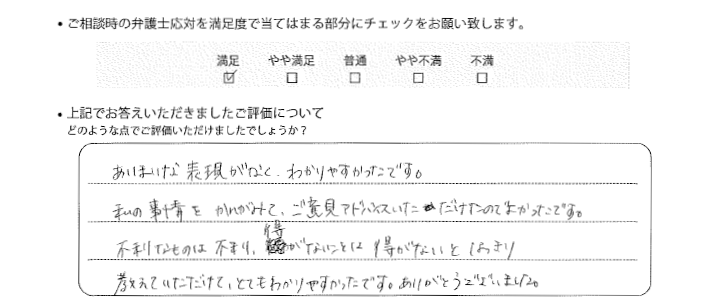 ・ご相談時の弁護士応対を満足度で当てはまる部分にチェックをお願い致します。
満足 やや満足 普通 やや不満 不満
☑ □ □ □ □
・上記でお答えいただきましたご評価について
どのような点でご評価いただけましたでしょうか？
あいまいな表現がなく、わかりやすかったです。
私の事情をかんがみて、ご意見アドバンスいただけたのでよかったです。
不利なものは不利、得がないことは得がないとはっきり
教えていただけて、とてもわかりやすかったです。ありがとうございました。